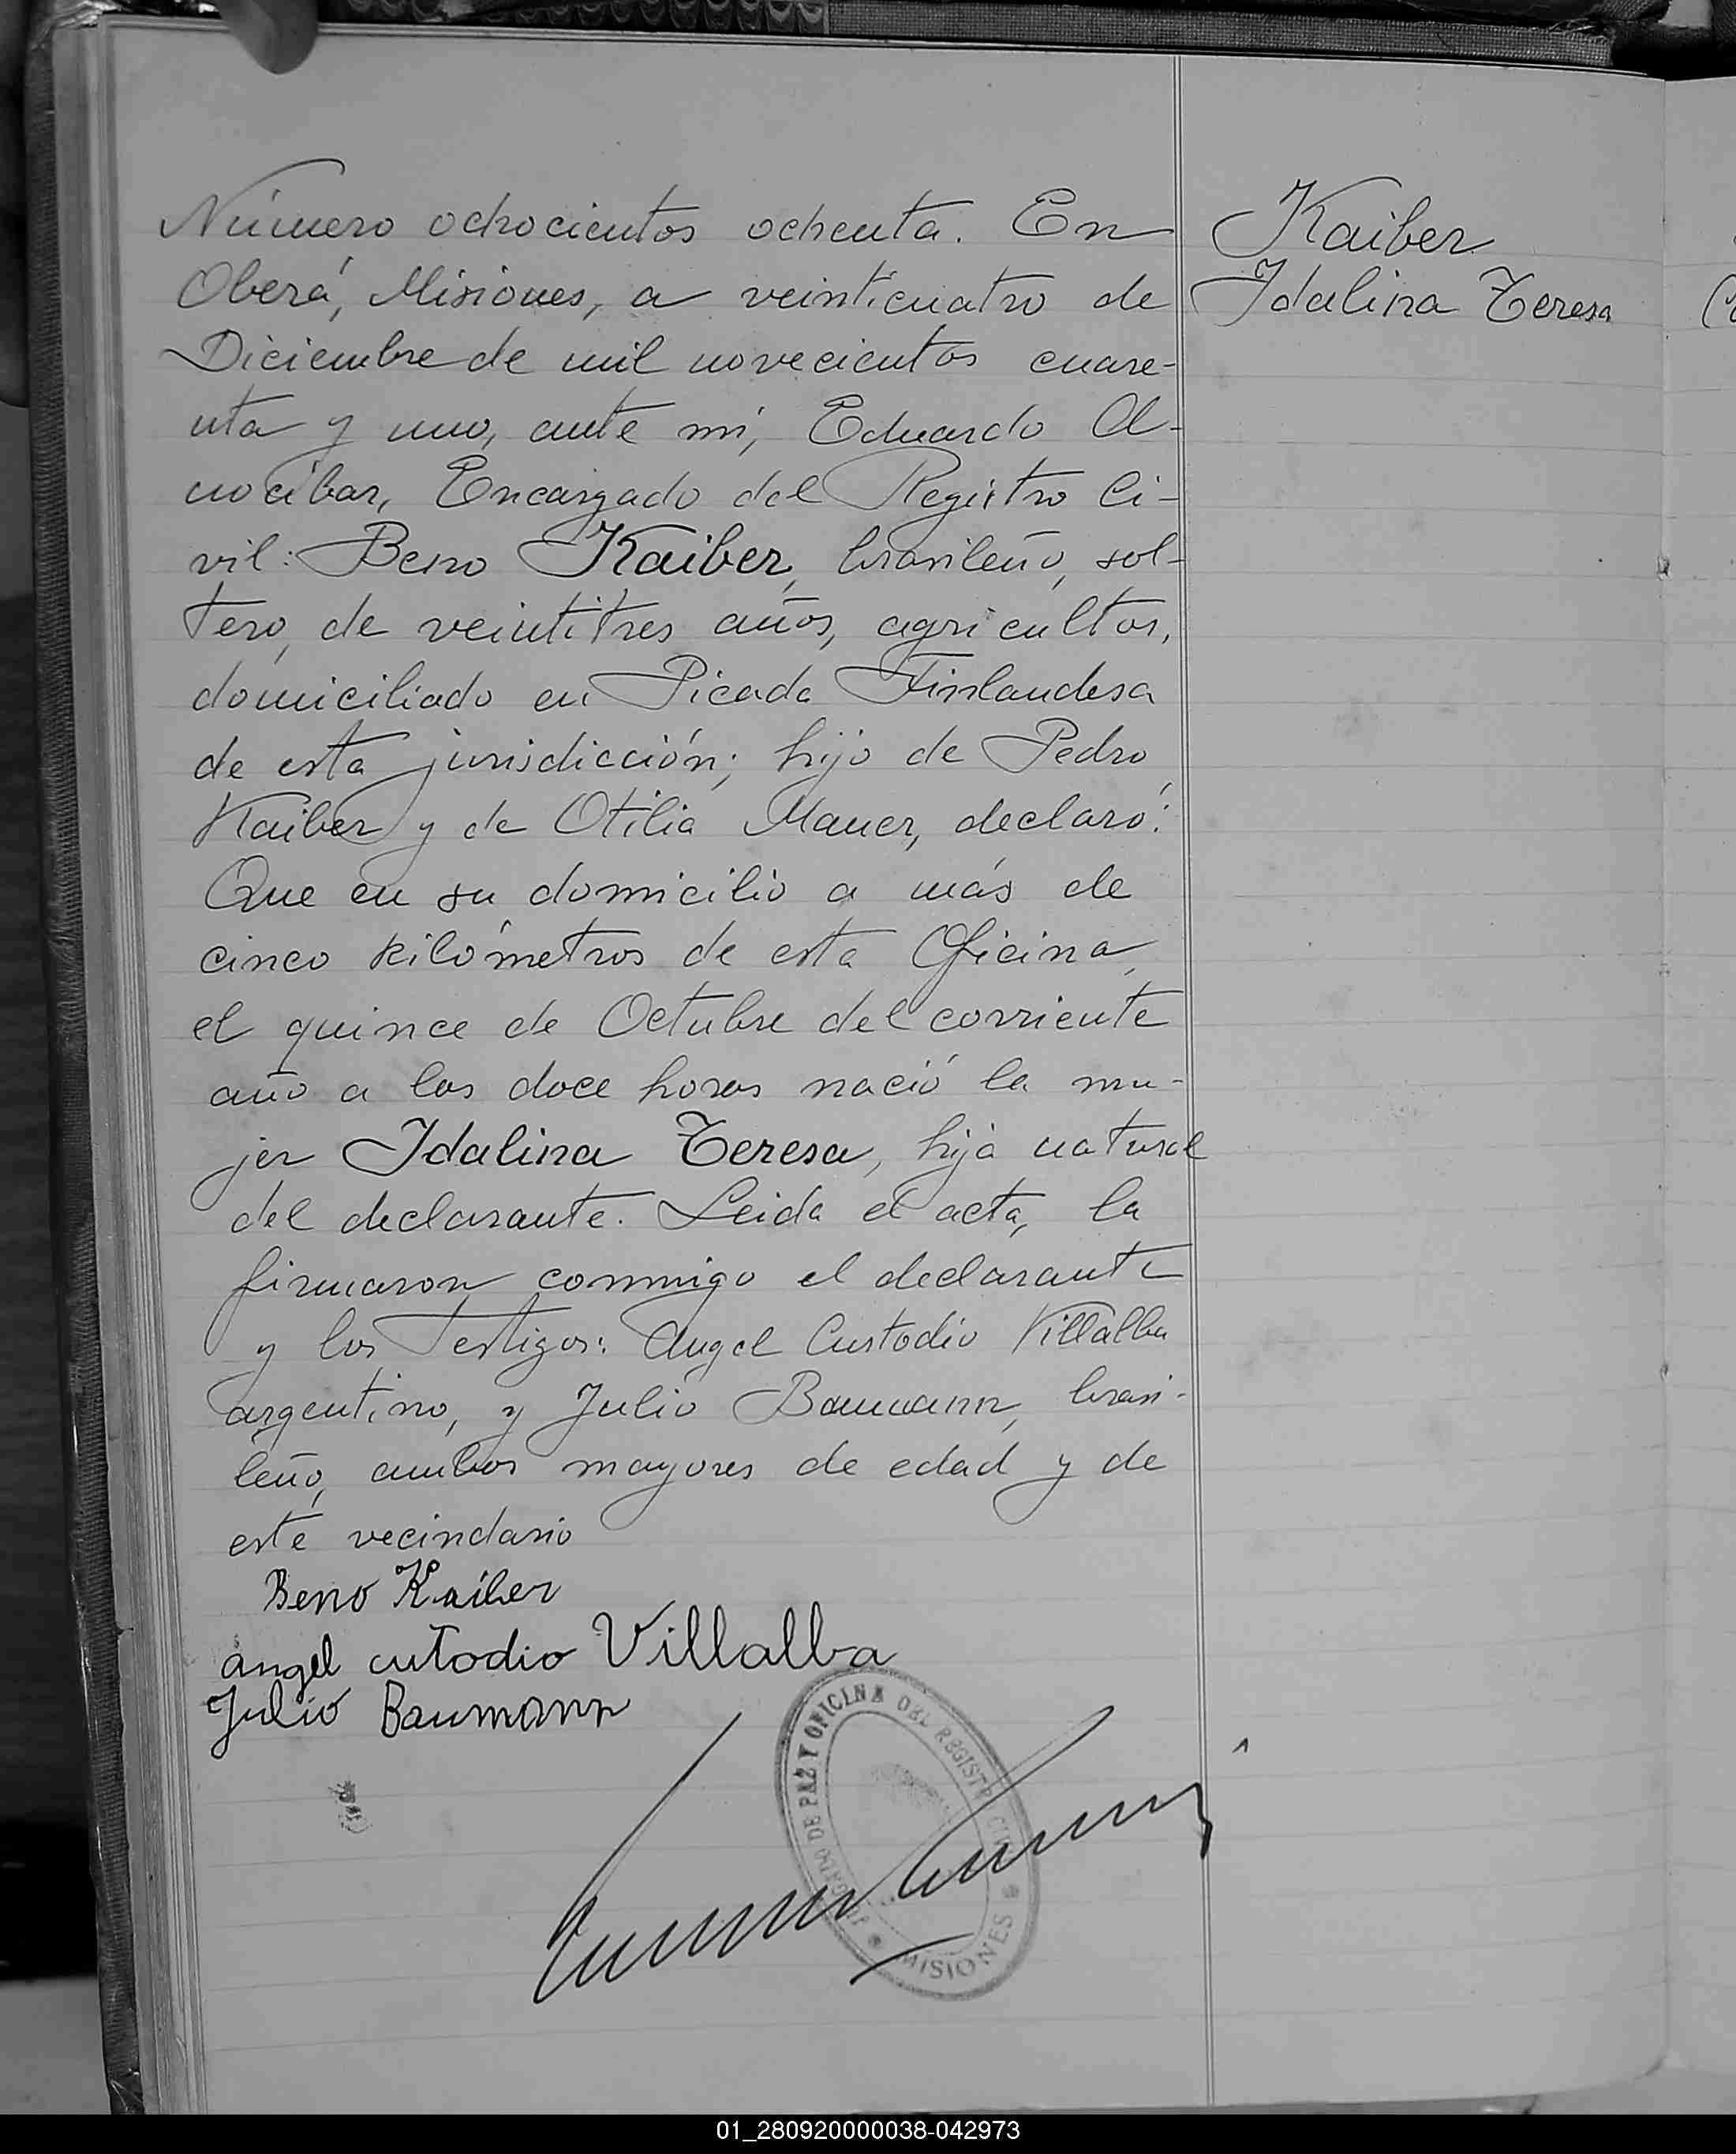 Número ochocientos ochenta. En
Oberá, Misiones, a veinticuatro de
Diciembre de mil novecientos cuare-
nta y uno, ante mí, Eduardo A-
nocíbar, Encargado del Registro Ci-
vil: Beno Kaiber, brasileño, sol-
tero, de veintitres años, agricultor,
domiciliado en Picada Finlandesa
de esta jurisdicción; hijo de Pedro
Kaiber y de Otilia Mauer, declaró:
Que en su domicilio a más de
cinco kilómetros de esta Oficina,
el quince de Octubre del corriente
año a las doce horas nació la mu-
jer Idalina Teresa, hija natural
del declarante. Leida el acta, la
firmaron conmigo el declarante
y los Testigos: Angel Custodio Villalba
argentino, y Julio Baumann, brasi-
leño, ambos mayores de edad y de
este vecindario
Beno Kaiber
angel cutodio Villalba
Julio Baumann
Kaiber
Idalina Teresa
JUZGADO DE PAZ Y OFICINA DEL REGISTRO CIVIL
MISIONES
01_280920000038-042973